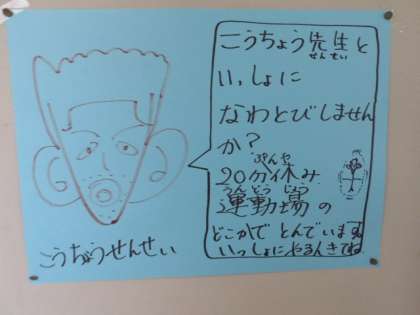 こうちょう先生と
せんせい
いっしょに
なわとびしません
か?
20分休み
うんどう じょう
運動場の
どこかで とんでいます
いっしょにやるんきてね
こうちょうせんせい